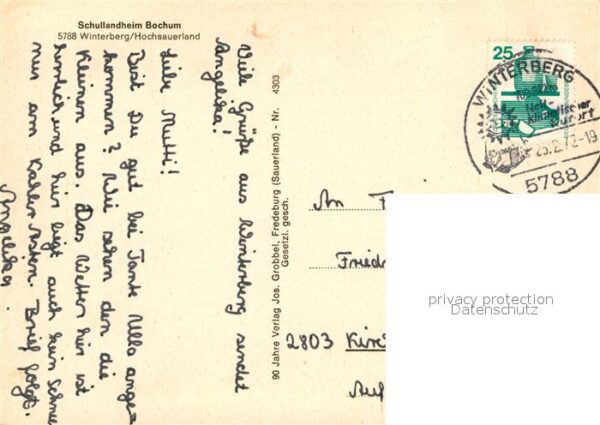 Schullandheim Bochum
5788 Winterberg/Hochsauerland
Viele Grüße aus Winterberg sendet
Angelika!
Liebe Mutti!
Bist Du gut bei Tante Ulla ange-
kommen? Wie sehen den die
Kleinen aus. Das Wetter hir ist
herrlich und hir liegt auch kein Schnee
nur am Kahler Asten. Brief folgt.
Angelika.
90 Jahre Verlag Jos. Grobbel, Fredeburg (Sauerland) - Nr. 4303
Gesetzl. gesch.
25
WINTERBERG
5788
An F
Fried
2803 Kirc
Auf
privacy protection
Datenschutz